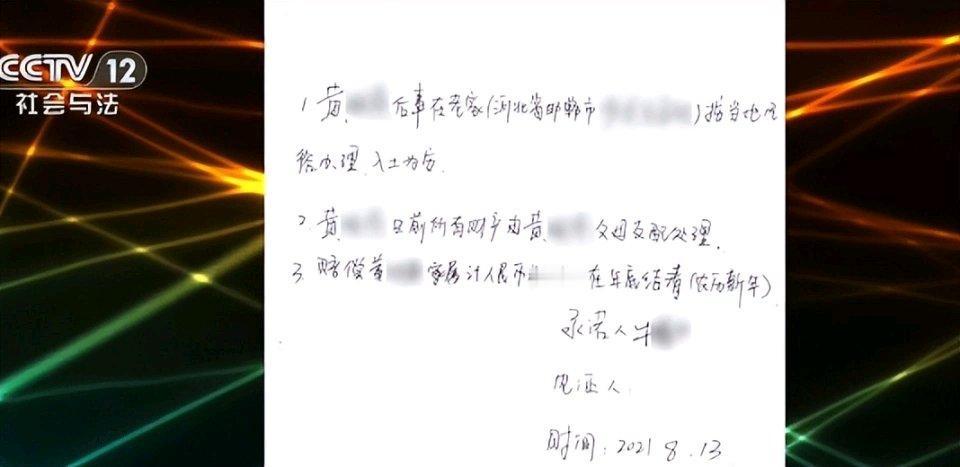 CCTV 12
社会与法
1 黄 后事在老家(河北省邯郸市 )按当地风
俗办理、入土为安.
2 黄 目前所有财产由黄 父母支配处理.
3 赔偿黄 家属计人民币 在年底结清(农历新年)
承诺人 牛
见证人
时间: 2021 8.13